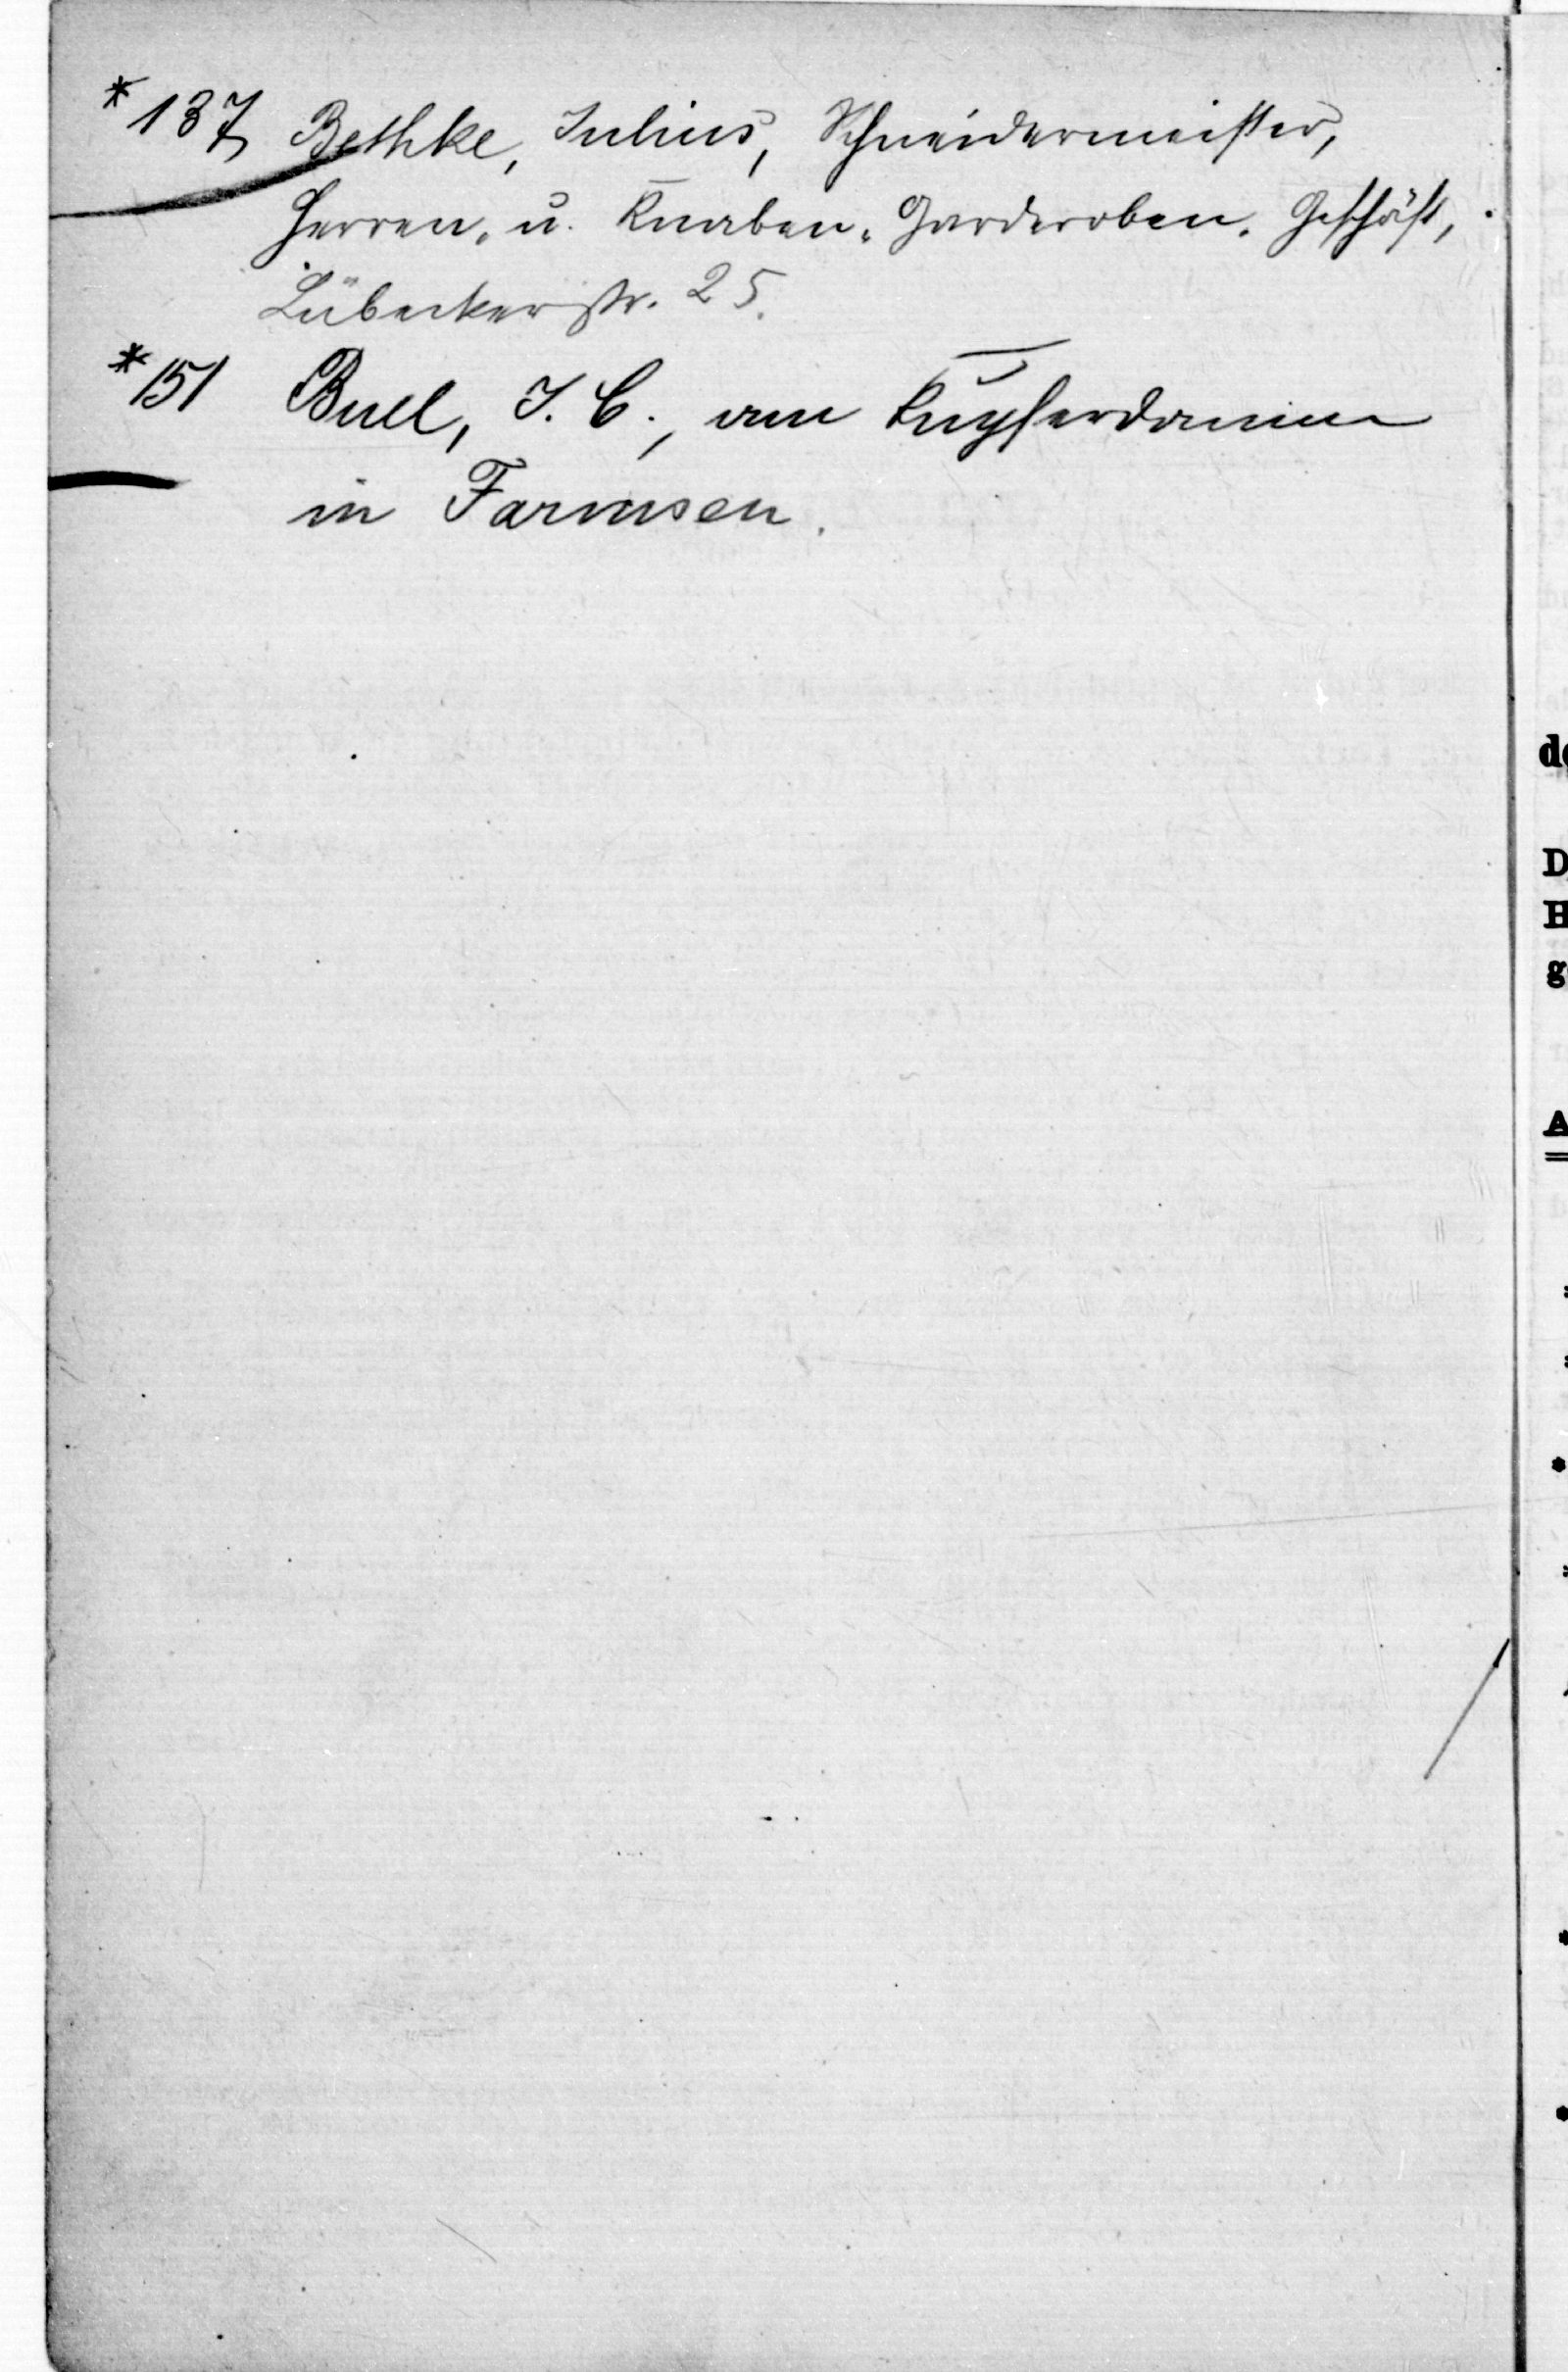 *137 Bethke, Julius, Schneidermeister,
Herren- u. Knaben-Garderoben-Geschäft,
Lübeckerstr. 25.
*151 Buel, J. C., am Kupferdamm
in Farmsen.
de
D
H
g
A